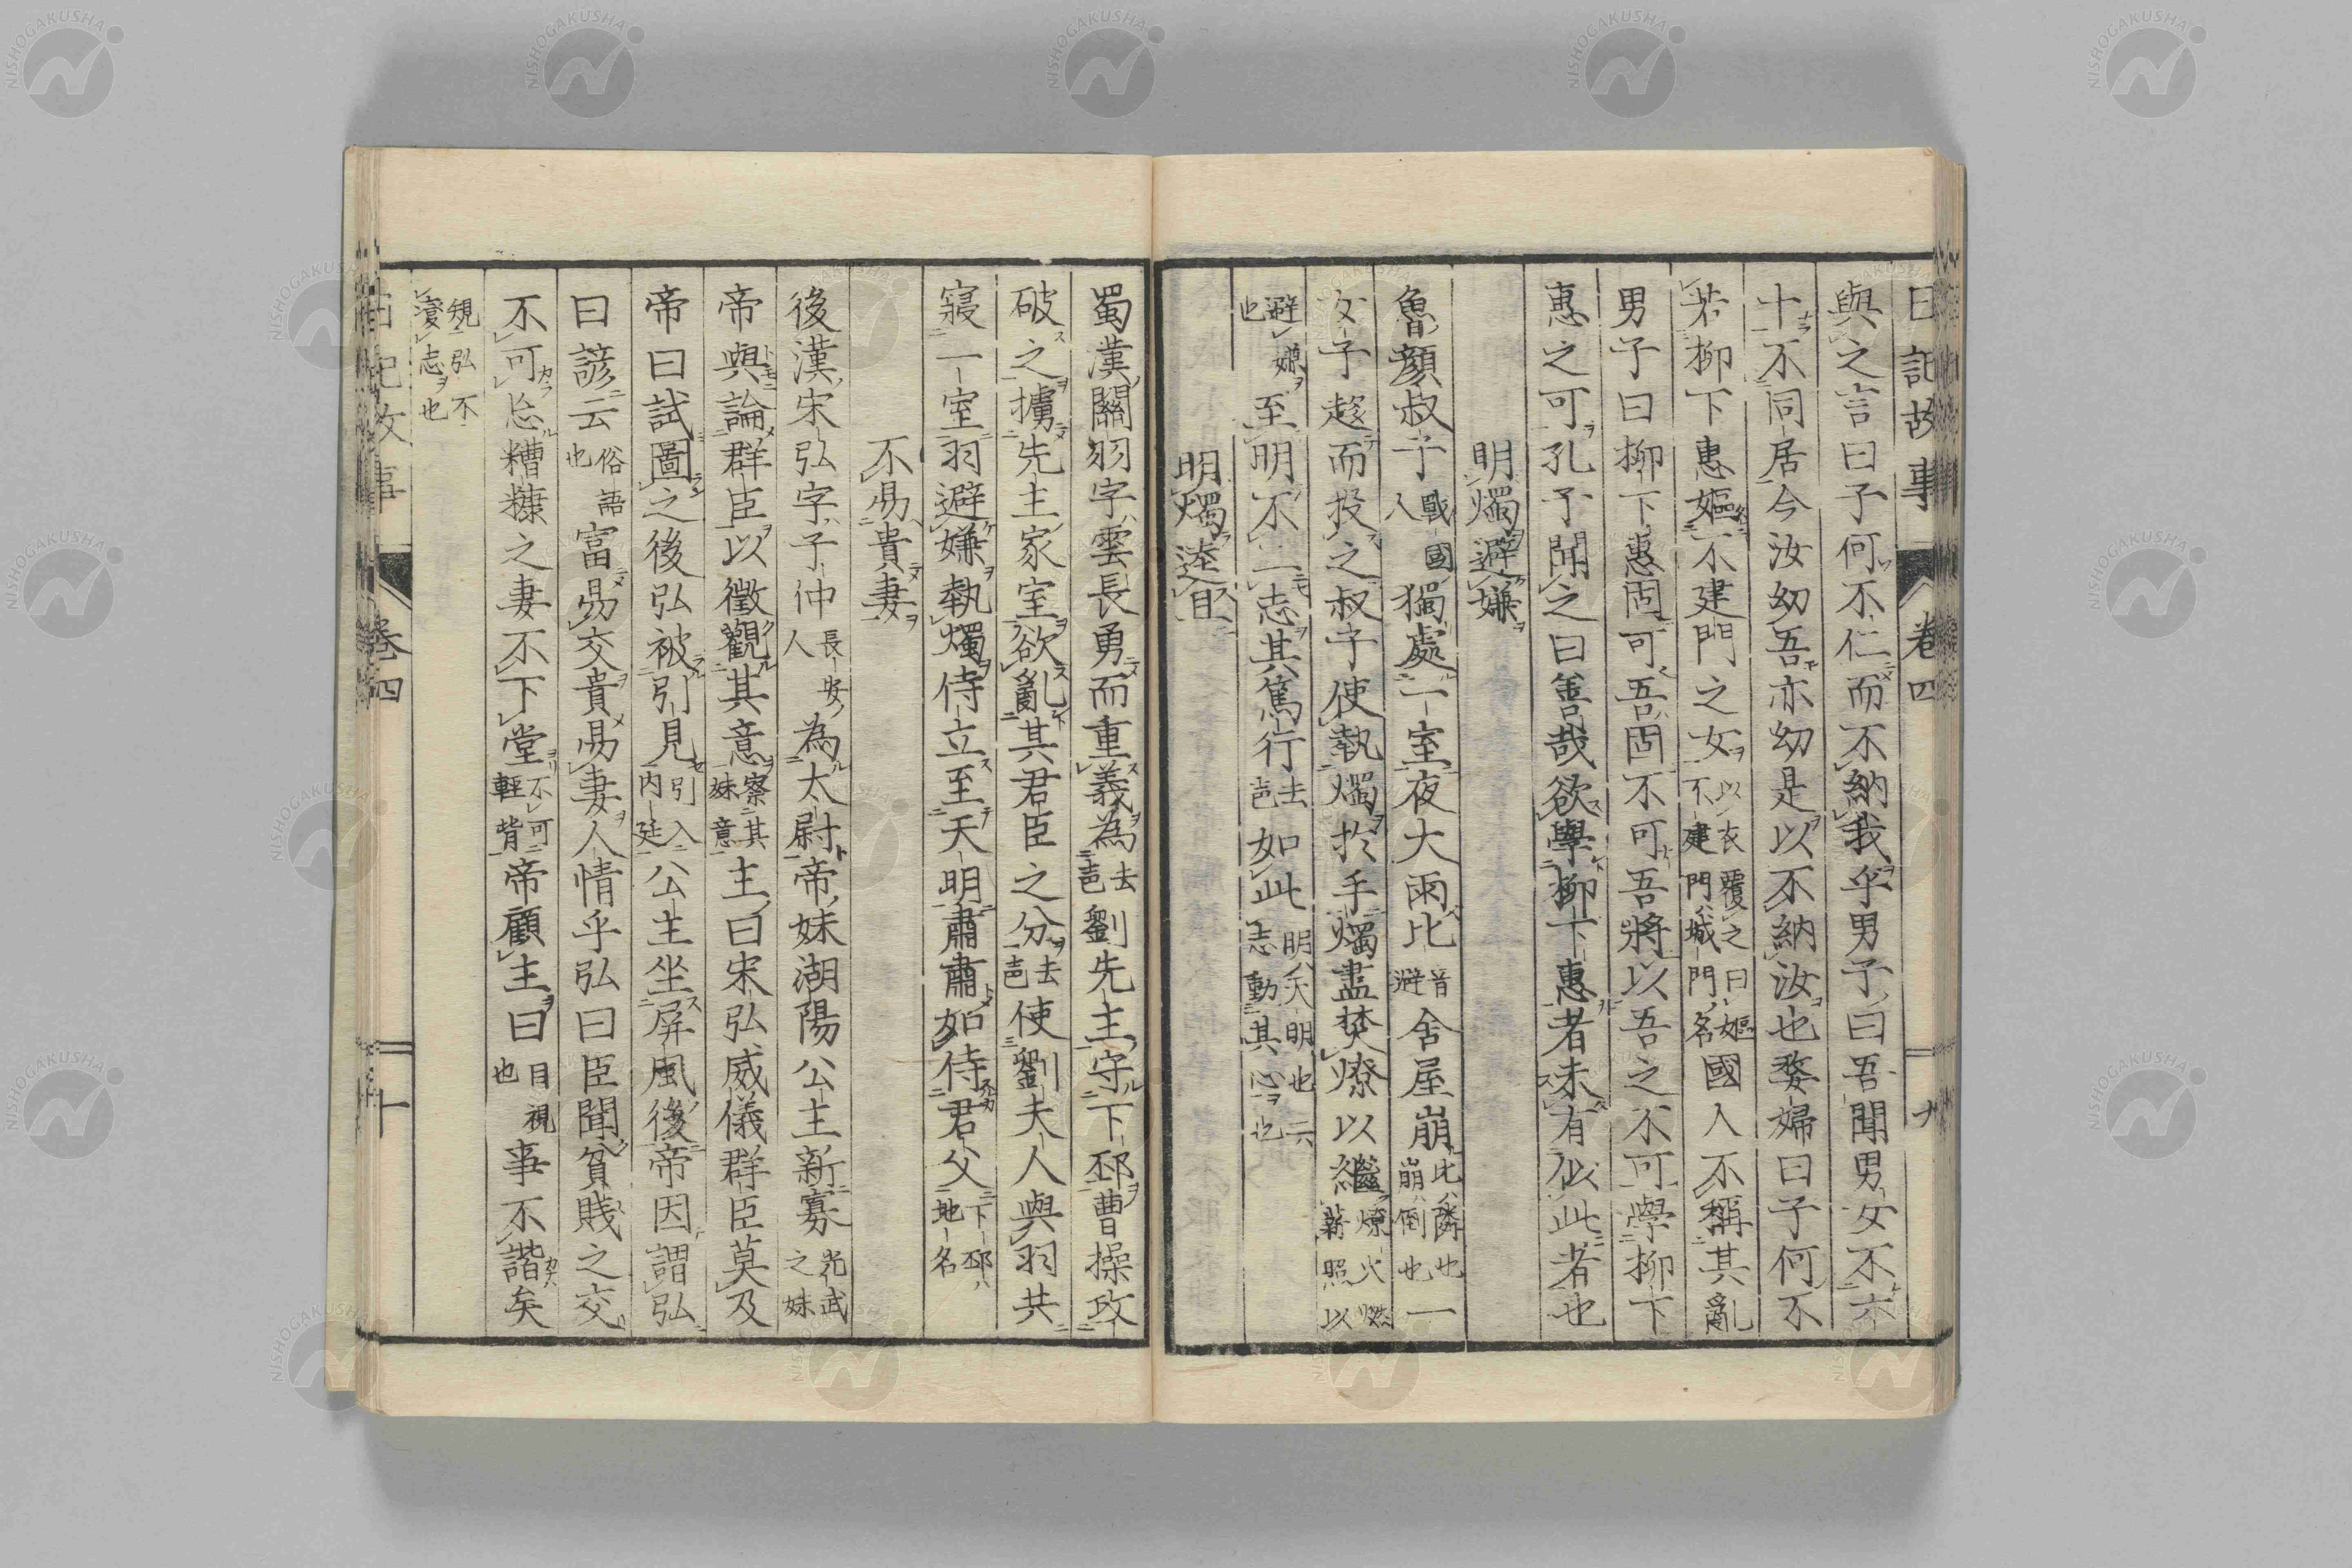 日記故事 卷四 九
與之言曰子何不仁而不納我乎男子曰吾聞男女不六
十不同居今汝幼吾亦幼是以不納汝也婺婦曰子何不
若柳下惠嫗不建門之女以衣覆之曰嫗不建門城門名國人不稱其亂
男子曰柳下惠固可吾固不可吾將以吾之不可學柳下
惠之可孔子聞之曰善哉欲學柳下惠者未有似此者也
明燭避嫌
魯顏叔子戰國人獨處一室夜大雨比音避舍屋崩比隣也崩倒也一
女子趍而投之叔子使執燭於手燭盡焚燎以繼燎火燃薪照以
避嫌也至明不二志其篤行去声如此明天明也二志動其心也
明燭達旦
蜀漢關羽字雲長勇而重義為去声劉先主守下邳曹操攻
破之擄先主家室欲亂其君臣之分去声使劉夫人與羽共
寢一室羽避嫌執燭侍立至天明肅肅如侍君父下邳地名
不易貴妻
後漢宋弘字子仲長安人為太尉帝妹湖陽公主新寡光武之妹
帝與論群臣以徵觀其意察其妹意主曰宋弘威儀群臣莫及
帝曰試圖之後弘被引見引入内廷公主坐屏風後帝因謂弘
曰諺云俗語也富易交貴易妻人情乎弘曰臣聞貧賎之交
不可忘糟糠之妻不下堂不可輕背帝顧主曰目視也事不諧矣
覌弘不渝志也
日記故事 卷四 十
NISHOGAKUSHA